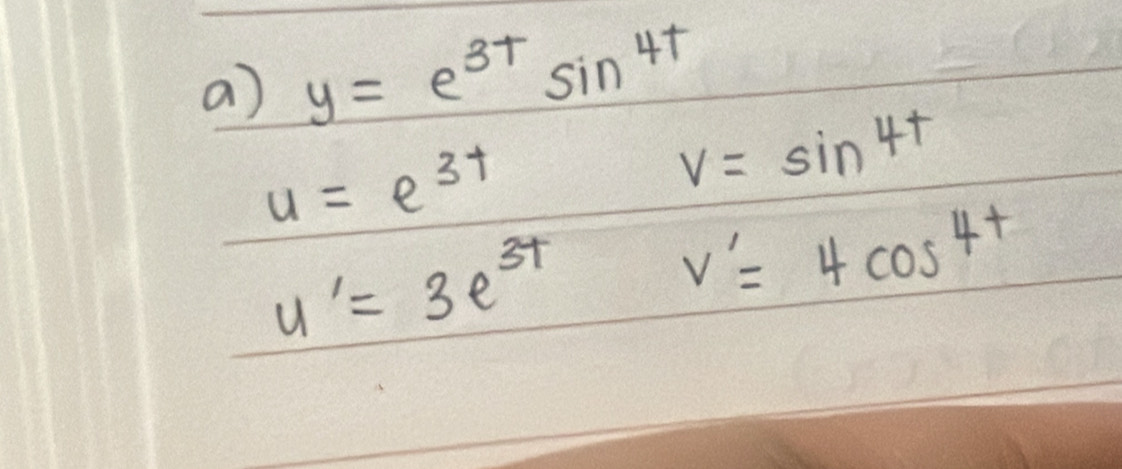 a) y = e^{3t} sin^{4t}
u = e^{3t} v = sin^{4t}
u' = 3e^{3t} v' = 4 cos^{4t}